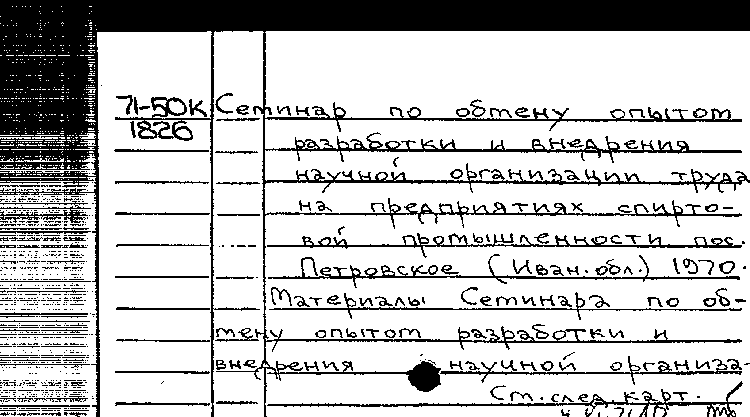 71-50К Семинар по обмену опытом
1826
разработки и внедрения
научной организации труда
на предприятиях спирто-
вой промышленности пос.
Петровское (Иван. обл.) 1970.
Материалы Семинара по об-
мену опытом разработки и
внедрения научной организа-
См. след. карт.